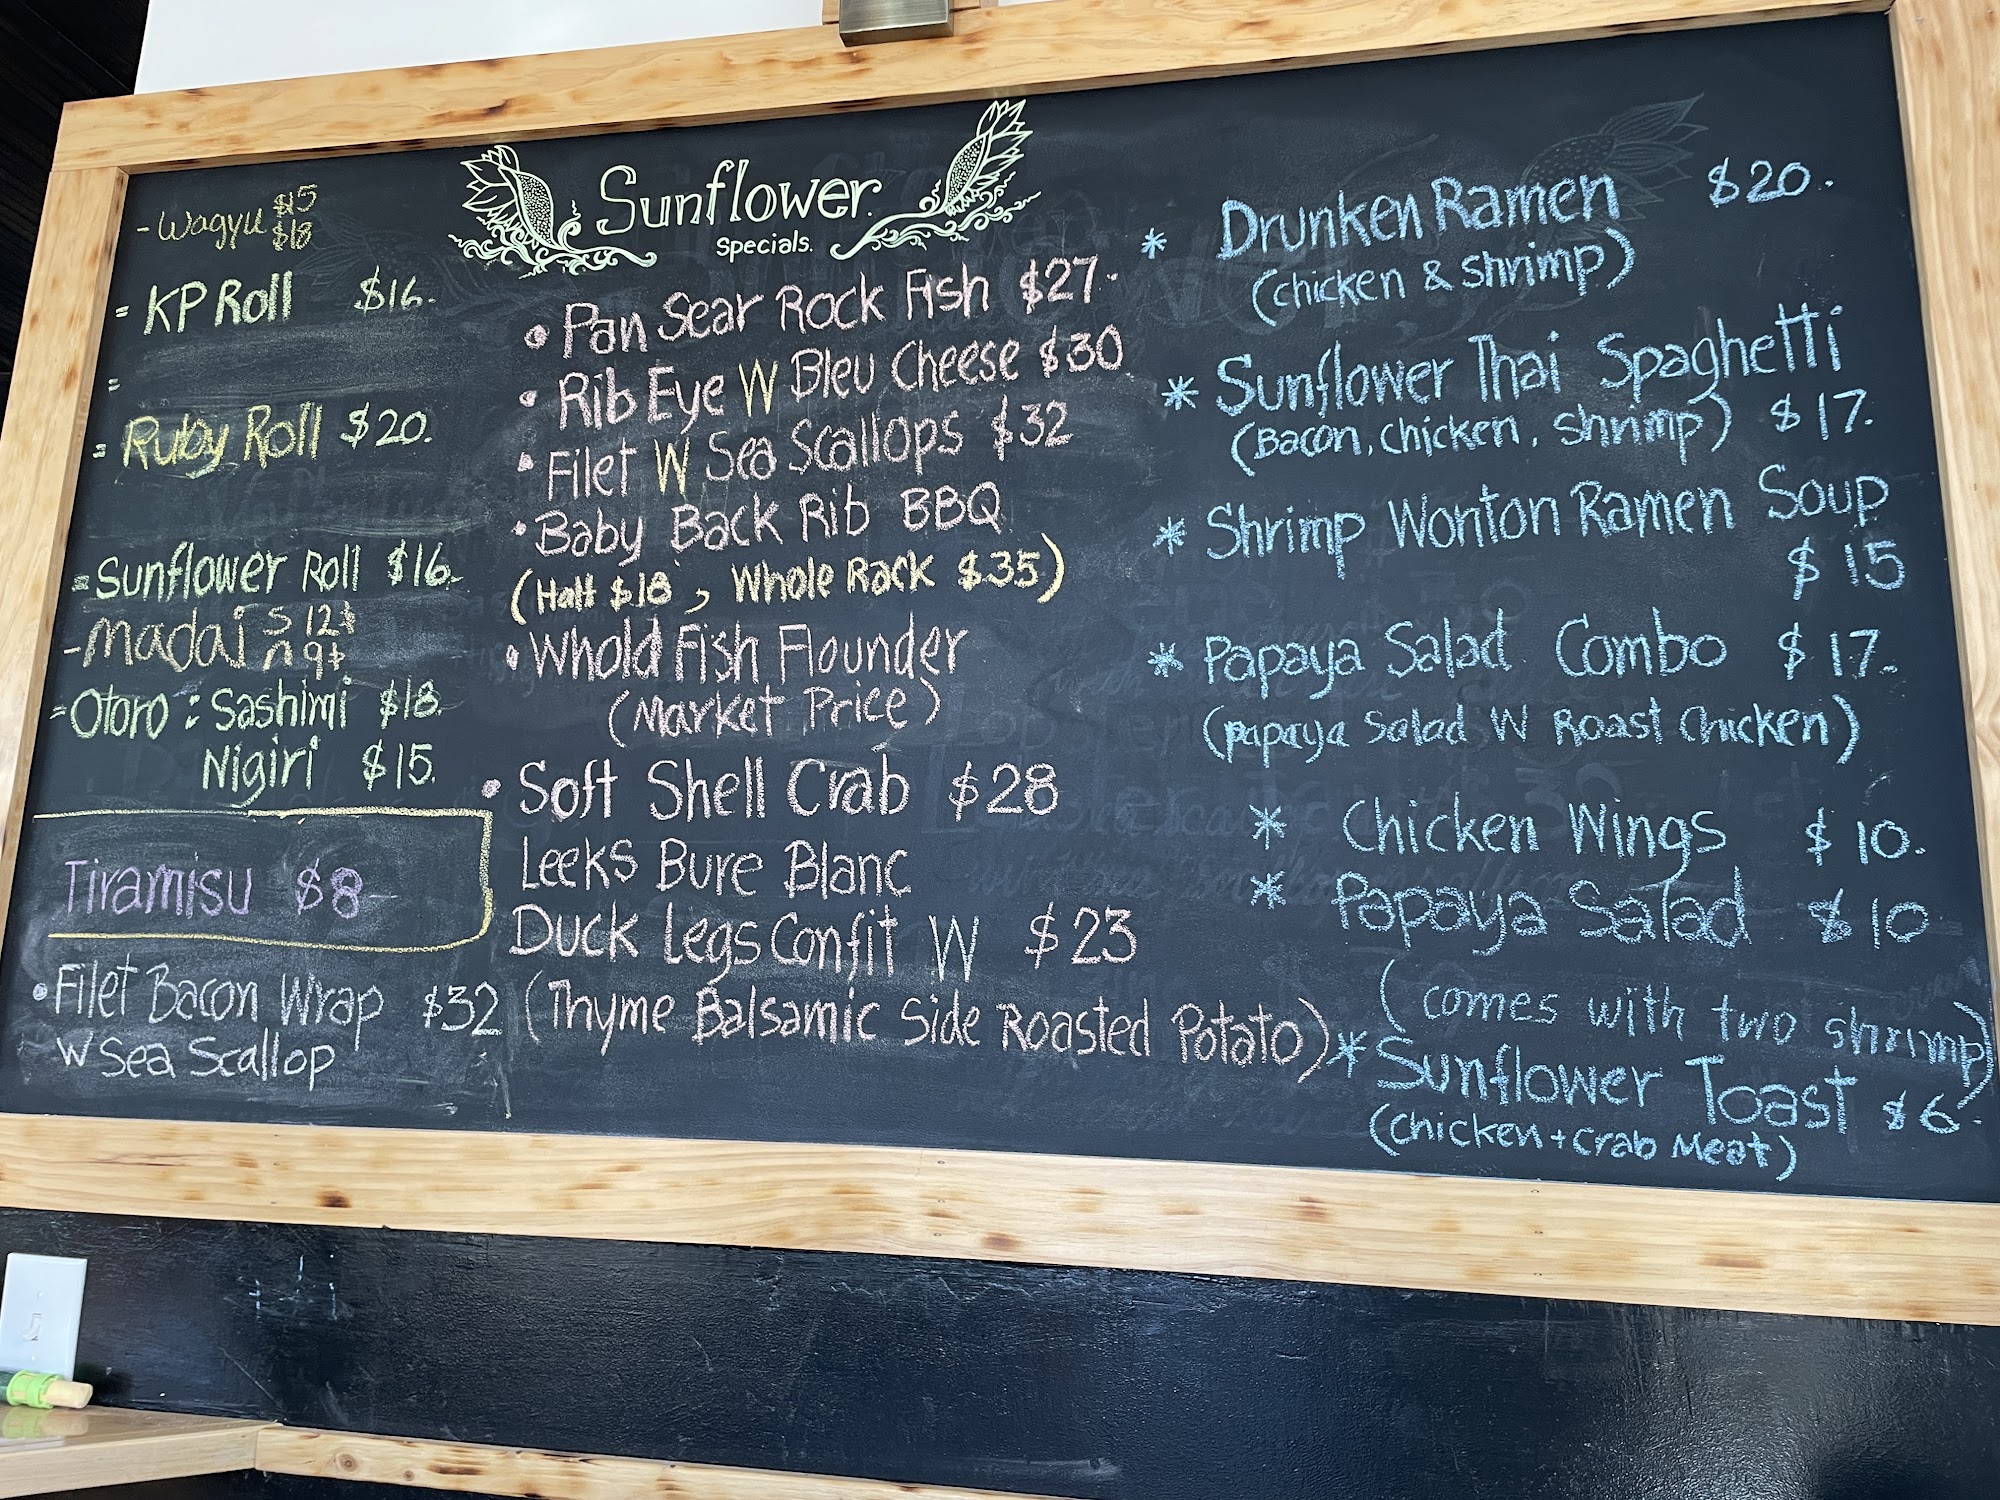 Sunflower.
Specials.
- Wagyu $15
$18
= KP Roll $16.
=
= Ruby Roll $20.
= Sunflower Roll $16.
- Madai S 12$
n 9$
= Otoro : Sashimi $18.
Nigiri $15.
Tiramisu $8-
• Filet Bacon Wrap $32
W Sea Scallop
• Pan Sear Rock Fish $27.
• Rib Eye W Bleu Cheese $30
• Filet W Sea Scallops $32
• Baby Back Rib BBQ
(Half $18, Whole Rack $35)
• Whold Fish Flounder
(Market Price)
• Soft Shell Crab $28
Leeks Bure Blanc
Duck Legs Confit W $23
(Thyme Balsamic Side Roasted Potato)
* Drunken Ramen $20.
(Chicken & Shrimp)
* Sunflower Thai Spaghetti
(Bacon, Chicken, Shrimp) $17.
* Shrimp Wonton Ramen Soup
$15
* Papaya Salad Combo $17.
(Papaya Salad W Roast Chicken)
* Chicken Wings $10.
* Papaya Salad $10
(comes with two shrimp)
* Sunflower Toast $6.
(Chicken + Crab Meat)